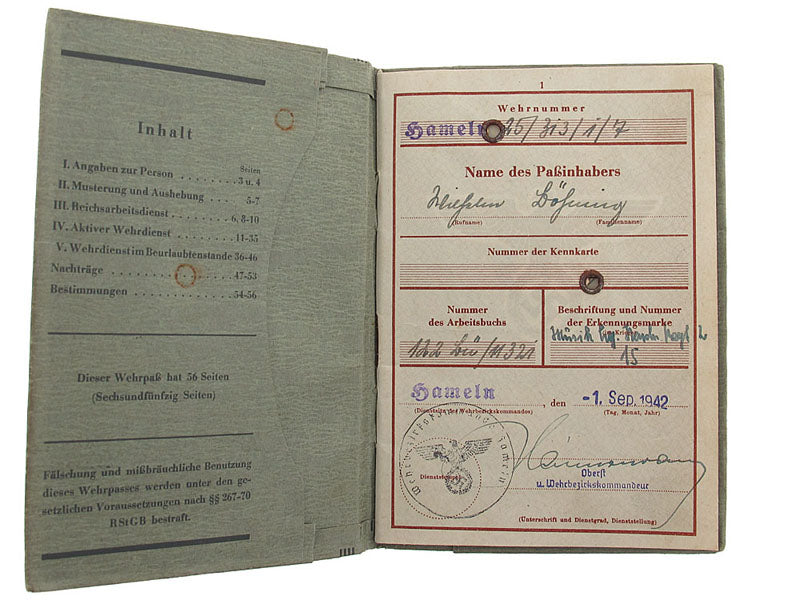 Inhalt
Seiten
I. Angaben zur Person . . . . . . . . 3 u. 4
II. Musterung und Aushebung . . . 5-7
III. Reichsarbeitsdienst . . . . . . . . 6, 8-10
IV. Aktiver Wehrdienst . . . . . . . . 11-35
V. Wehrdienst im Beurlaubtenstande 36-46
Nachträge . . . . . . . . . . . 47-53
Bestimmungen . . . . . . . . 54-56
Dieser Wehrpaß hat 56 Seiten
(Sechsundfünfzig Seiten)
Fälschung und mißbräuchliche Benutzung
dieses Wehrpasses werden unter den ge-
setzlichen Voraussetzungen nach §§ 267-70
RStGB bestraft.
1
Wehrnummer
Hameln 25/313/1/7
Name des Paßinhabers
Wilhelm Böhning
(Rufname) (Familienname)
Nummer der Kennkarte
Nummer
des Arbeitsbuchs
Beschriftung und Nummer
der Erkennungsmarke
15
Hameln, den -1. Sep. 1942
(Dienstsitz des Wehrbezirkskommandos) (Tag, Monat, Jahr)
Oberst
u. Wehrbezirkskommandeur
(Unterschrift und Dienstgrad, Dienststellung)